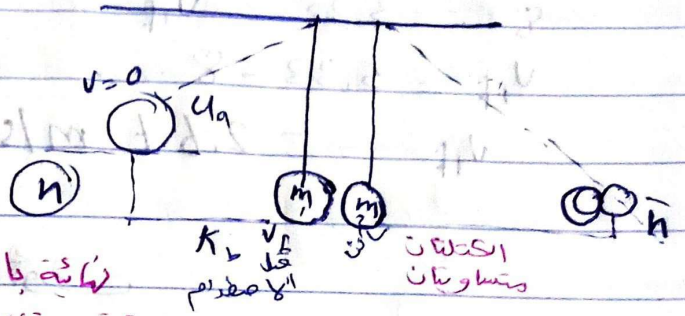 v = 0
Ua
h
m₁ m₂
h
K_b v_b
قبل
الاصطدام
الكتلتان
متساويتان
نهائية با